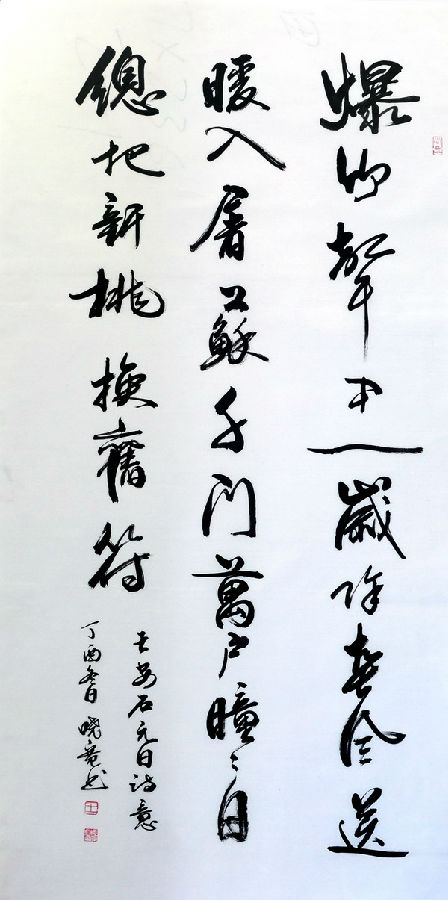 爆竹聲中一歲除春風送
暖入屠蘇千門萬戶曈〻日
總把新桃換舊符
王安石元日詩意
丁酉日曉書